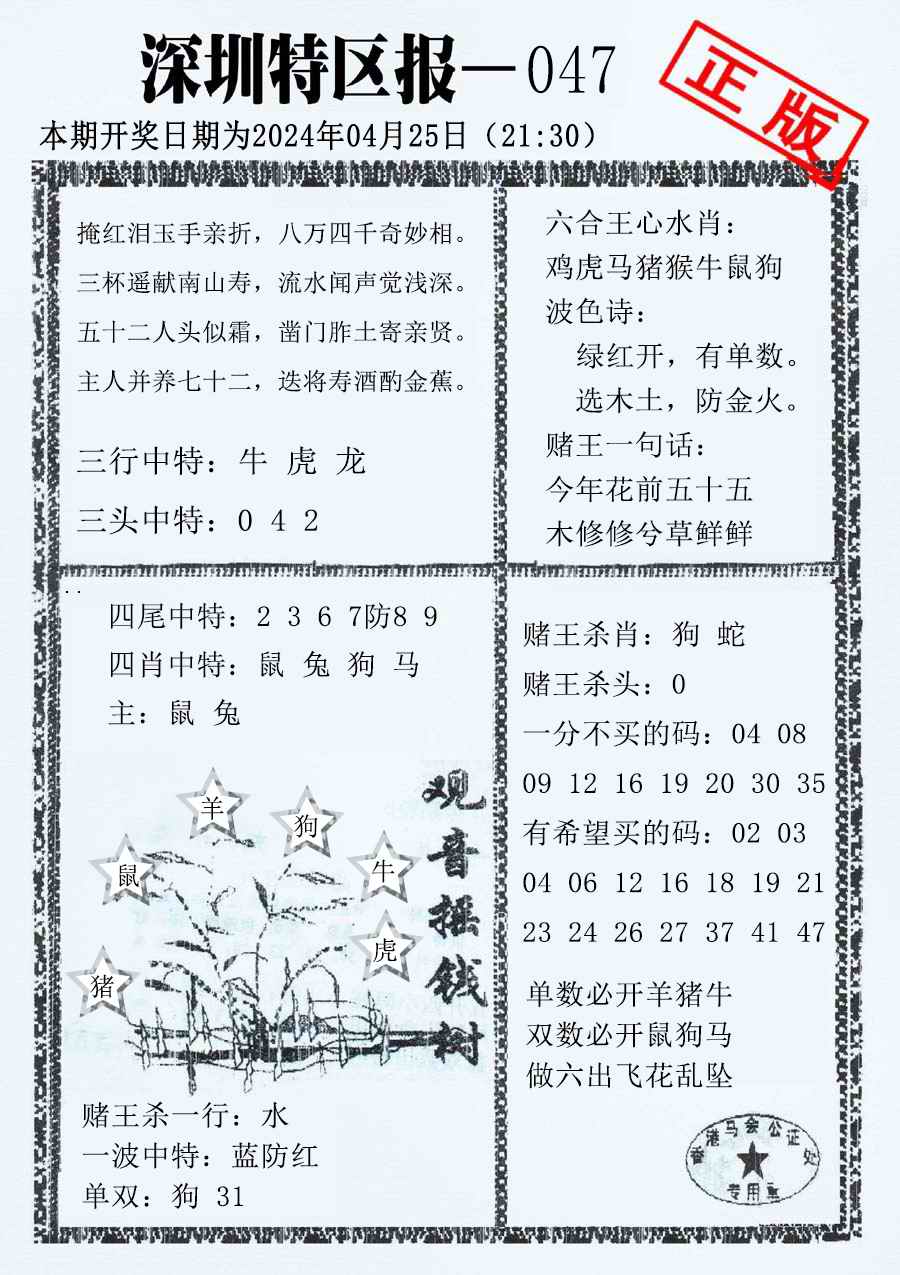 深圳特区报—047
正版
本期开奖日期为2024年04月25日（21:30）
掩红泪玉手亲折，八万四千奇妙相。
三杯遥献南山寿，流水闻声觉浅深。
五十二人头似霜，凿门胙土寄亲贤。
主人并养七十二，迭将寿酒酌金蕉。
三行中特：牛 虎 龙
三头中特：0 4 2
六合王心水肖：
鸡虎马猪猴牛鼠狗
波色诗：
绿红开，有单数。
选木土，防金火。
赌王一句话：
今年花前五十五
木修修兮草鲜鲜
四尾中特：2 3 6 7防8 9
四肖中特：鼠 兔 狗 马
主：鼠 兔
羊
狗
鼠
牛
虎
猪
观音摇钱树
赌王杀一行：水
一波中特：蓝防红
单双：狗 31
赌王杀肖：狗 蛇
赌王杀头：0
一分不买的码：04 08
09 12 16 19 20 30 35
有希望买的码：02 03
04 06 12 16 18 19 21
23 24 26 27 37 41 47
单数必开羊猪牛
双数必开鼠狗马
做六出飞花乱坠
香港马会公证处
专用章